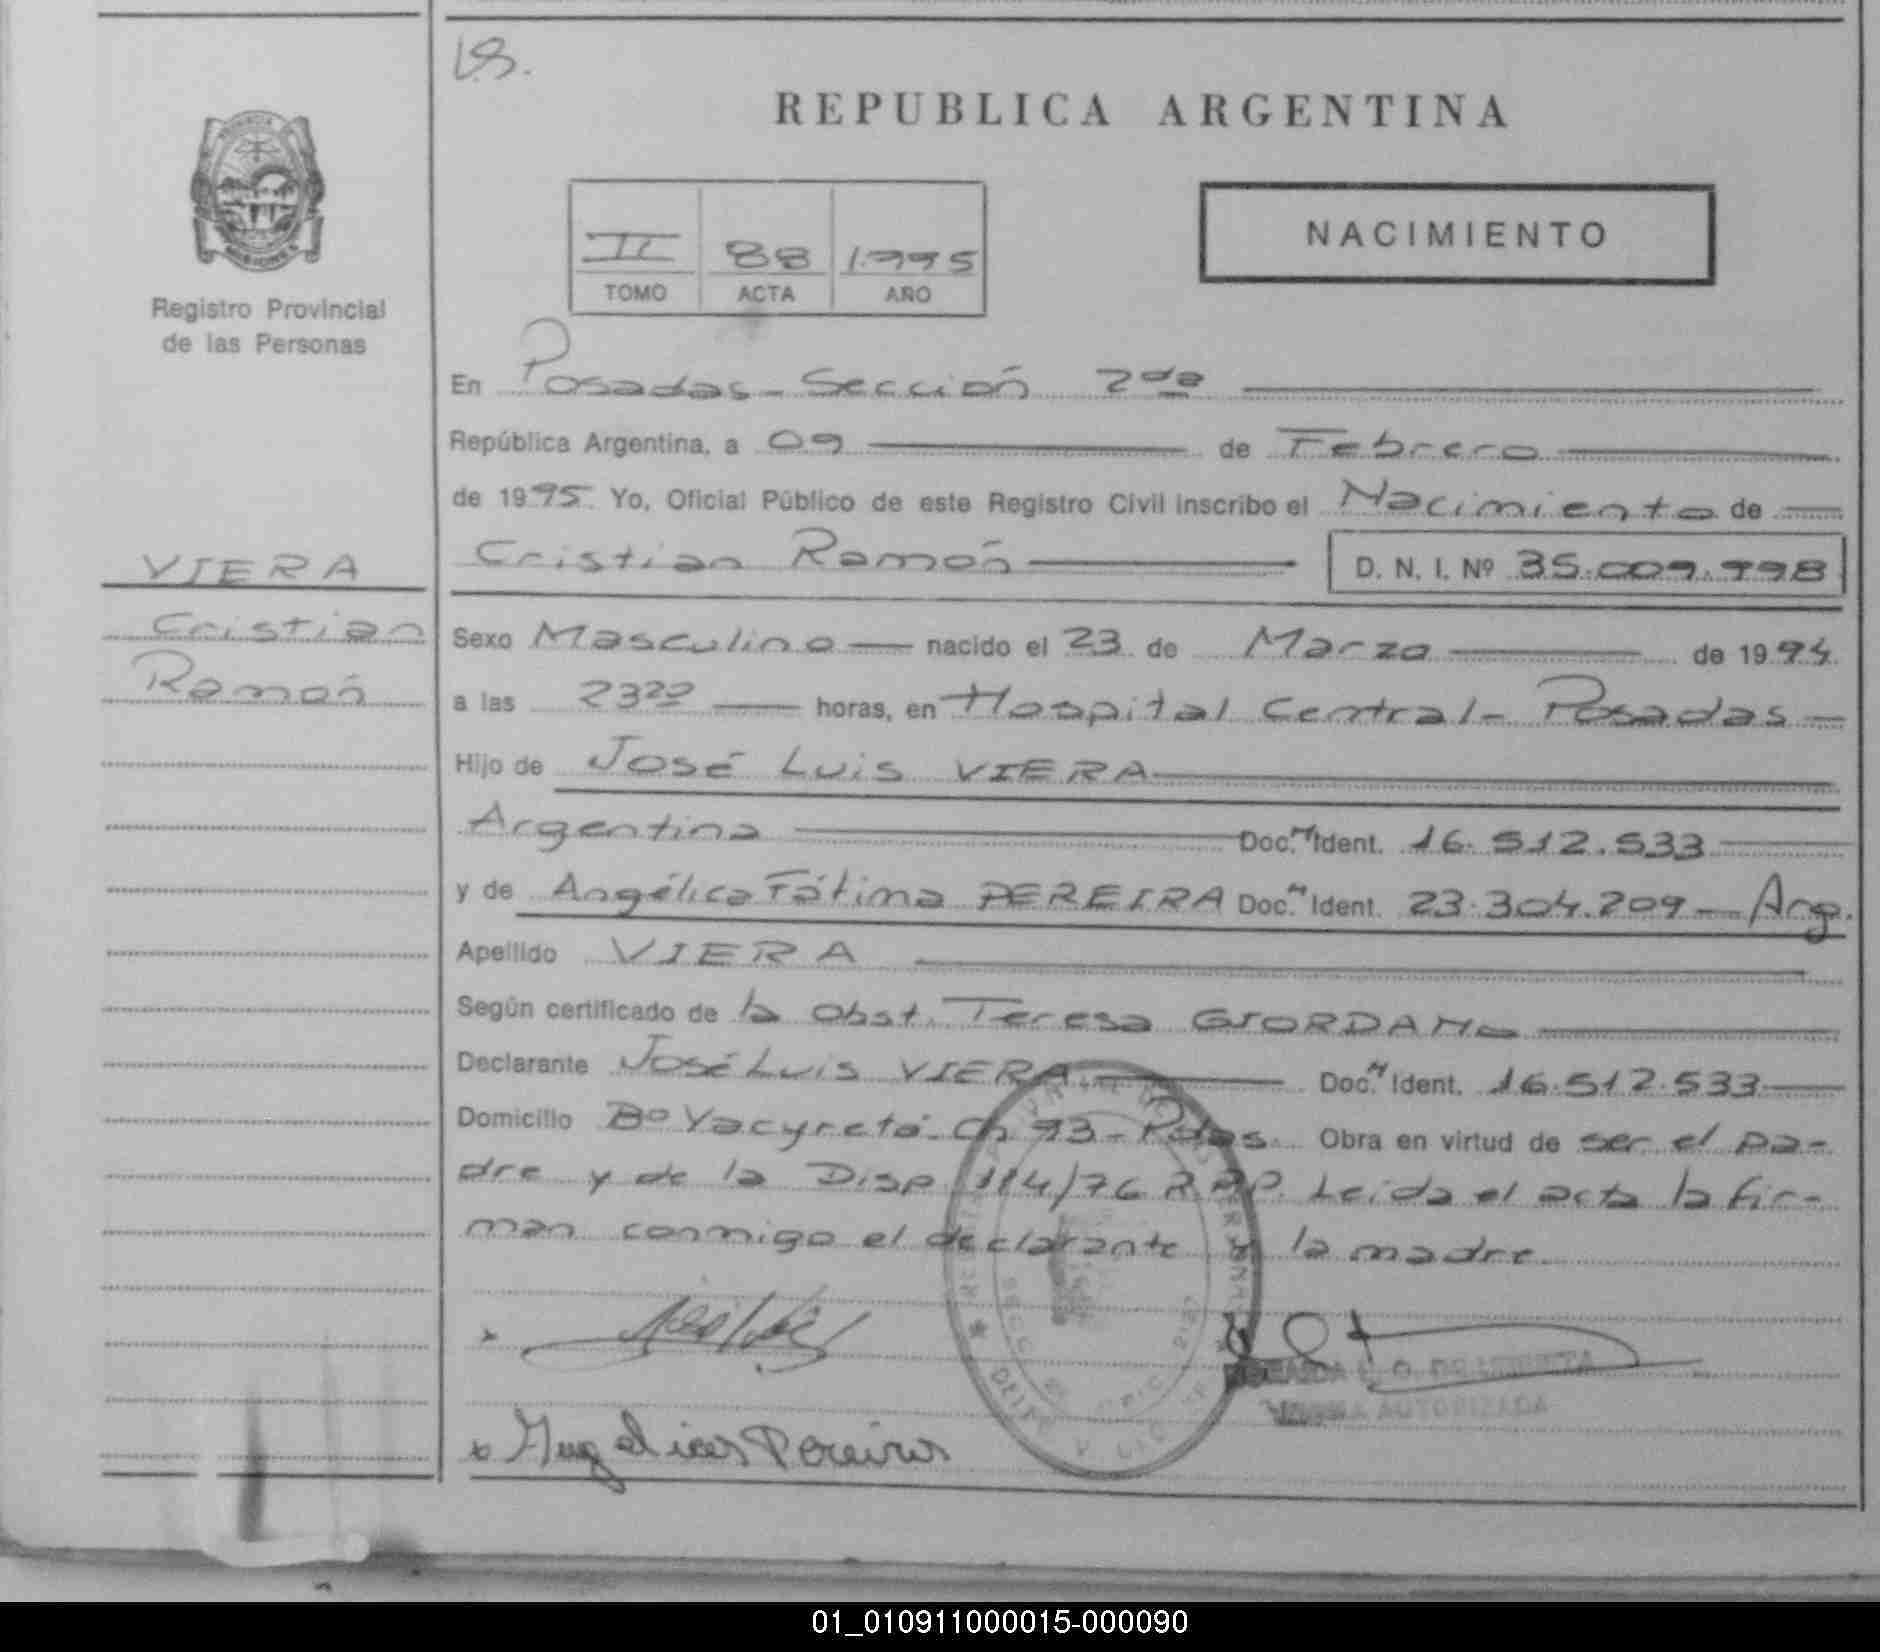 REPUBLICA ARGENTINA
II 88 1.995
TOMO ACTA AÑO
NACIMIENTO
Registro Provincial
de las Personas
VIERA
Cristian
Ramón
En Posadas - Sección 2da
República Argentina, a 09 de Febrero
de 1995. Yo, Oficial Público de este Registro Civil inscribo el Nacimiento de
Cristian Ramón D. N. I. Nº 35.009.998
Sexo Masculino nacido el 23 de Marzo de 1994
a las 23²⁰ horas, en Hospital Central - Posadas
Hijo de José Luis VIERA
Argentina Doc. N Ident. 16.512.533
y de Angélica Fátima PEREIRA Doc. N Ident. 23.304.209 - Arg.
Apellido VIERA
Según certificado de la Obst. Teresa GIORDANO
Declarante José Luis VIERA Doc. N Ident. 16.512.533
Domicilio Bº Yacyretá - Ch 93 - Pdas. Obra en virtud de ser el pa-
dre y de la Disp 114/76 R.P.P. Leida el acta la fir-
man conmigo el declarante y la madre.
Angelica Pereira
AUTORIZADA
01_010911000015-000090